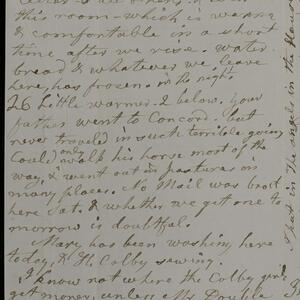 this room - which is warm
& comfortable in a short
time after we rise. water
bread & whatever we leave
here, has frozen. in the night
26 little warmer. 2 below. Your
father went to Concord. but
never traveled in such terrible going
Could only walk his horse most of the
way, & went out in pastures in
many places. No Mail was brot
here Sat. & whether we get one to
morrow is doubtful.
Mary has been washing here
today, & H. Colby sewing.
I know not where the Colby
get money, unless Mr.
in the angels in the